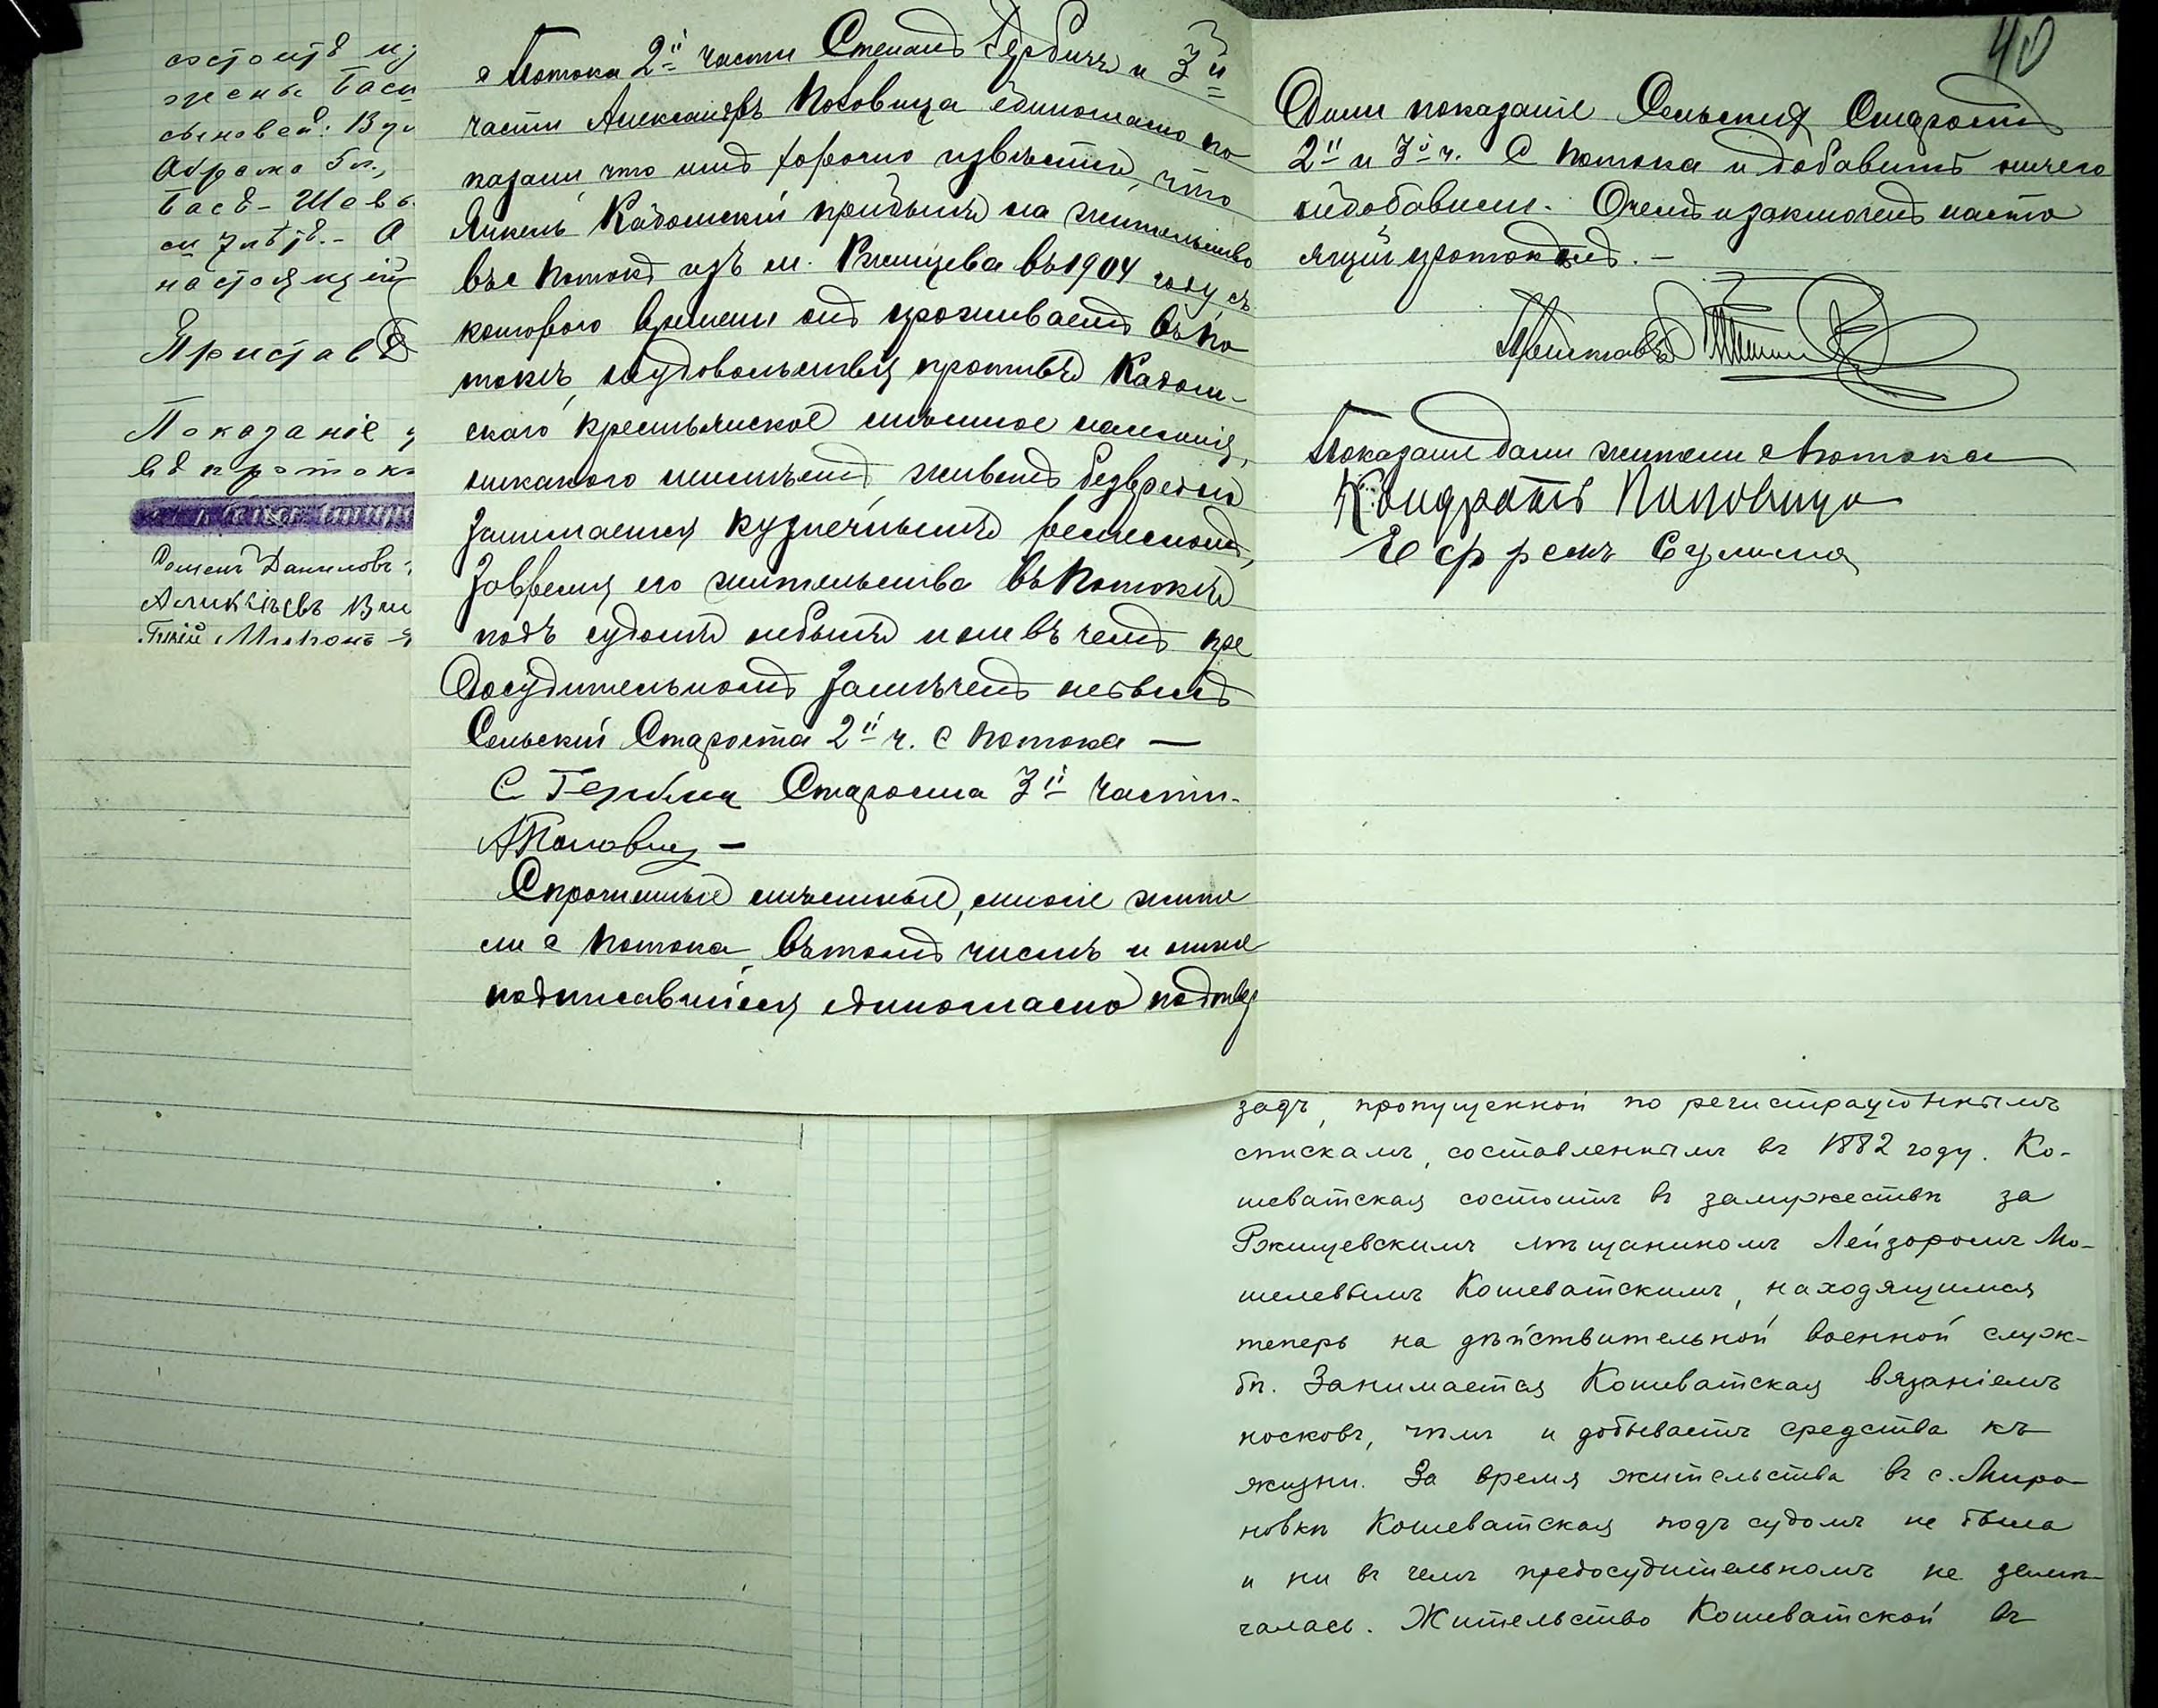 состоитъ из
жены Бас
сыновей: В
Абрама 5 л.,
Бася-Шева
А
настоящій
Приставъ
Показаніе
въ проток
Семенъ Даниловъ
АлиКсіевъ
Миронъ
с Потока 2й части Степанъ Гербичъ и 3й
части Александръ Половица единогласно по
казали, что имъ хорошо извѣстно, что
Янкель Кадомскій прибылъ на жительство
въ с Потокъ изъ м. Ржищева въ 1904 году съ
котораго времени онъ проживаетъ въ По
токѣ, неудовольствія противъ Кадом-
скаго крестьянское мѣстное населенія,
никакого неимѣетъ, живетъ безвредно
занимается кузнечнымъ ремесломъ,
Завремя его жительства въ Потокѣ
подъ судомъ небылъ и ни въ чемъ пре
досудительномъ замѣченъ небылъ
Сельскій Староста 2й ч. с Потока —
С Гербич Староста 3й части.
АПоловиц —
Спрошенные мѣстные, многіе жите
ли с Потока въ томъ числѣ и ниже
подписавшіеся единогласно подтвер
40
дили показаніе Сельскихъ Старостъ
2й и 3й ч. с Потока и добавить ничего
недобавили. Очемъ и заключенъ насто
ящій протоколъ. —
Приставъ
Показаніе дали жители с Потока
Кондратъ Половица
Ефремъ Сулима
задъ, пропущенной по регистраціоннымъ
спискамъ, составленнымъ въ 1882 году. Ко-
шеватская состоитъ въ замужествѣ за
Ржищевскимъ мѣщаниномъ Лейзоромъ Мо-
шелевымъ Кошеватскимъ, находящимся
теперь на дѣйствительной военной служ-
бѣ. Занимается Кошеватская вязаніемъ
носковъ, чѣмъ и добываетъ средства къ
жизни. За время жительства въ с. Миро-
новкѣ Кошеватская подъ судомъ не была
и ни въ чемъ предосудительномъ не замѣ-
чалась. Жительство Кошеватской въ